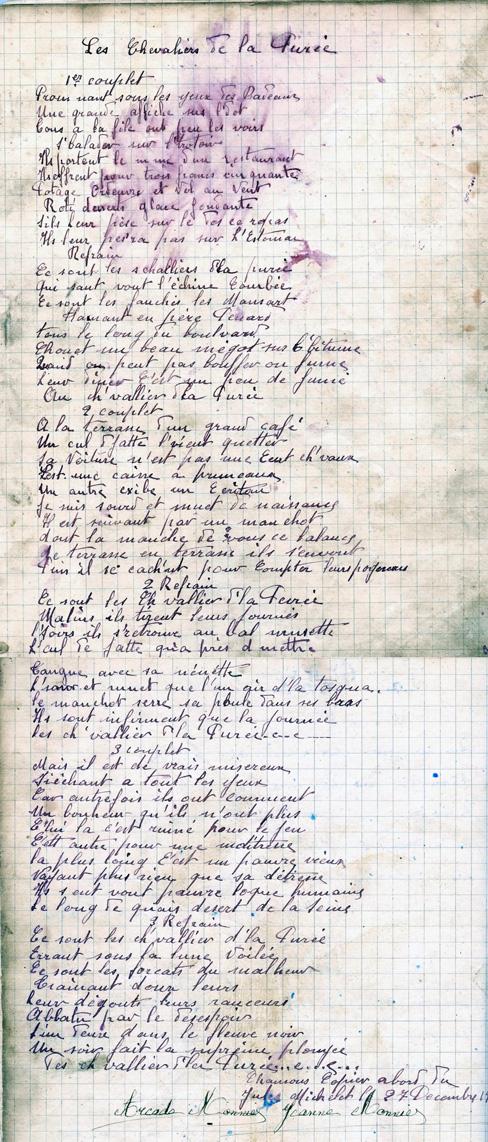 Les Chevaliers de la Purée
1er couplet
Prom nant sous les yeux des Badeaux
Une grande affiche sus l'dot
Tous a la file ont peu les voirs
S'balader sur l'trotoir
Ils portent le menu d'un restaurant
Ils offrent pour trois francs cinquante
Potage Ordeuvre et Vol au Vent
Roti desserts glace fondante
S'ils leur pèse sur le dos ce repas
Ils leur pes'ra pas sur l'Estomac
Refrain
Ce sont les chvalliers d'la purée
qui sont vont l'échine Courbée
Ce sont les fauchés les Mansart
Flanant en père Penard
tous le long du boulvard
Chouet un beau mégot sus l'bitume
Quand on peut pas bouffer on fume
Leur diner C'est un peu de fumée
Au ch'vallier d'la Purée
2 couplet
A la terrasse d'un grand café
Un cul d'jatte l'vient guetter
Sa Voiture n'est pas une Cent ch'vaux
C'est une caisse a pruneaux
Un autre exibe un Ecritau
Je suis sourd et muet de naissance
Il est suivant par un manchot
dont la manche de vous ce balance
De terrasse en terrasse ils s'en vont
Puis il se cach'nt pour Compter leurs pognons
2 Refrain
Ce sont les Ch vallier d'la Purée
Malins ils tirent leurs journés
l'soirs ils s'retrouve au bal musette
L'cul de jatte qu'a pres d mettre
Tangue avec sa nénette
L'sour et muet que l'un gir d'la
le manchot serre sa poule dans ses bras
Ils sont infirment que la journée
les ch'vallier d'la Purée
3 couplet
Mais il est de vrais miséreux
S'cachant a tout les yeux
Car autrefois ils ont connuent
Un bonheur qu'ils n'ont plus
C'lui la c'est ruiné pour le jeu
C'ett autre pour une
la plus loing C'est un pauvre vieux
Vayant plus rien que sa détresse
Ils s'ent vont pauvre loque humaine
Le long de quais desert de la Seine
3 Refrain
Ce sont les ch'vallier d'la Purée
Errant sous la lune Voilée
Ce sont les forcats du malheur
Trainant doux leurs
Leur dégouts leurs ranceurs
Abbatu par le desespoir
L'un d'eux dans le fleuve noir
Un soir fait la suprême plongée
Des ch vallier d'la Purée
Chansons Copier abord du
Jules Michelet le 27 Decembre 19
Arcade Monnier Jeanne Monnier